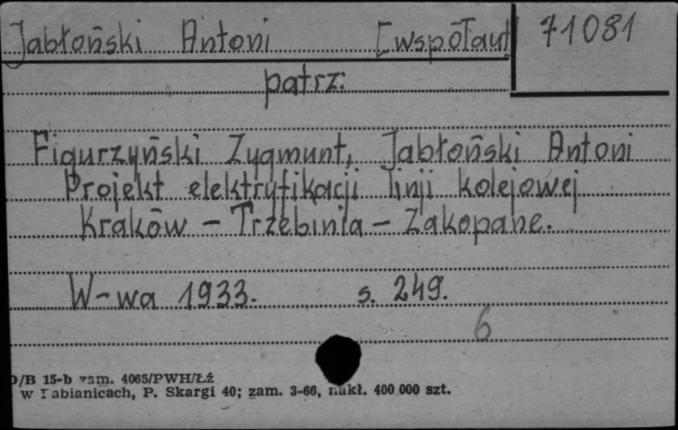 Jabłoński Antoni [współaut 71081
patrz:
Figurzyński Zygmunt, Jabłoński Antoni
Projekt elektryfikacji linji kolejowej
Kraków - Trzebinia - Zakopane.
W-wa 1933. s. 249.
6
D/B 15-b zam. 4065/PWH/Łź
w Pabianicach, P. Skargi 40; zam. 3-66, nakł. 400 000 szt.